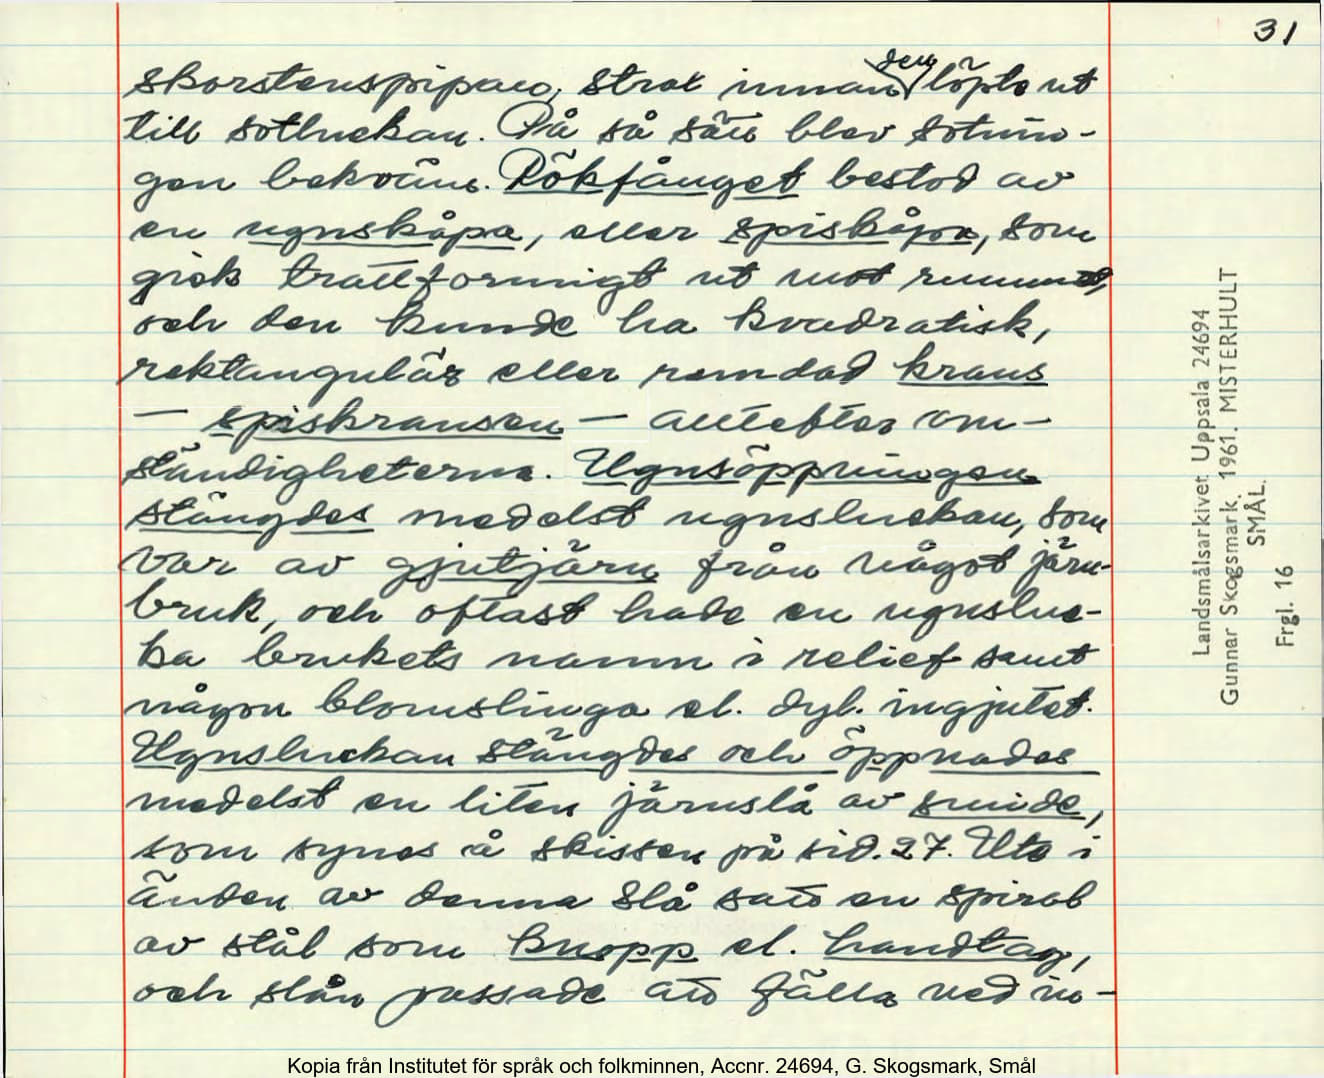 31
skorstenspipan, strax innan den löpte ut
till sotluckan. På så sätt blev sotnin-
gen bekväm. Rökfånget bestod av
en ugnskåpa, eller spiskåpa, som
gick trattformigt ut mot rummet,
och den kunde ha kvadratisk,
rektangulär eller rundad krans
— spiskransen — alltefter om-
ständigheterna. Ugnsöppningen
stängdes medelst ugnsluckan, som
var av gjutjärn från något järn-
bruk, och oftast hade en ugnsluc-
ka brukets namn i relief samt
någon blomslinga el. dyl. ingjutet.
Ugnsluckan stängdes och öppnades
medelst en liten järnslå av smide,
som synes å skissen på sid. 27. Ute i
änden av denna slå satt en spiral
av stål som knopp el. handtag,
och slån passade att fälla ned in-
Landsmålsarkivet Uppsala 24694
Gunnar Skogsmark. 1961. MISTERHULT
SMÅL.
Frgl. 16
Kopia från Institutet för språk och folkminnen, Accnr. 24694, G. Skogsmark, Smål